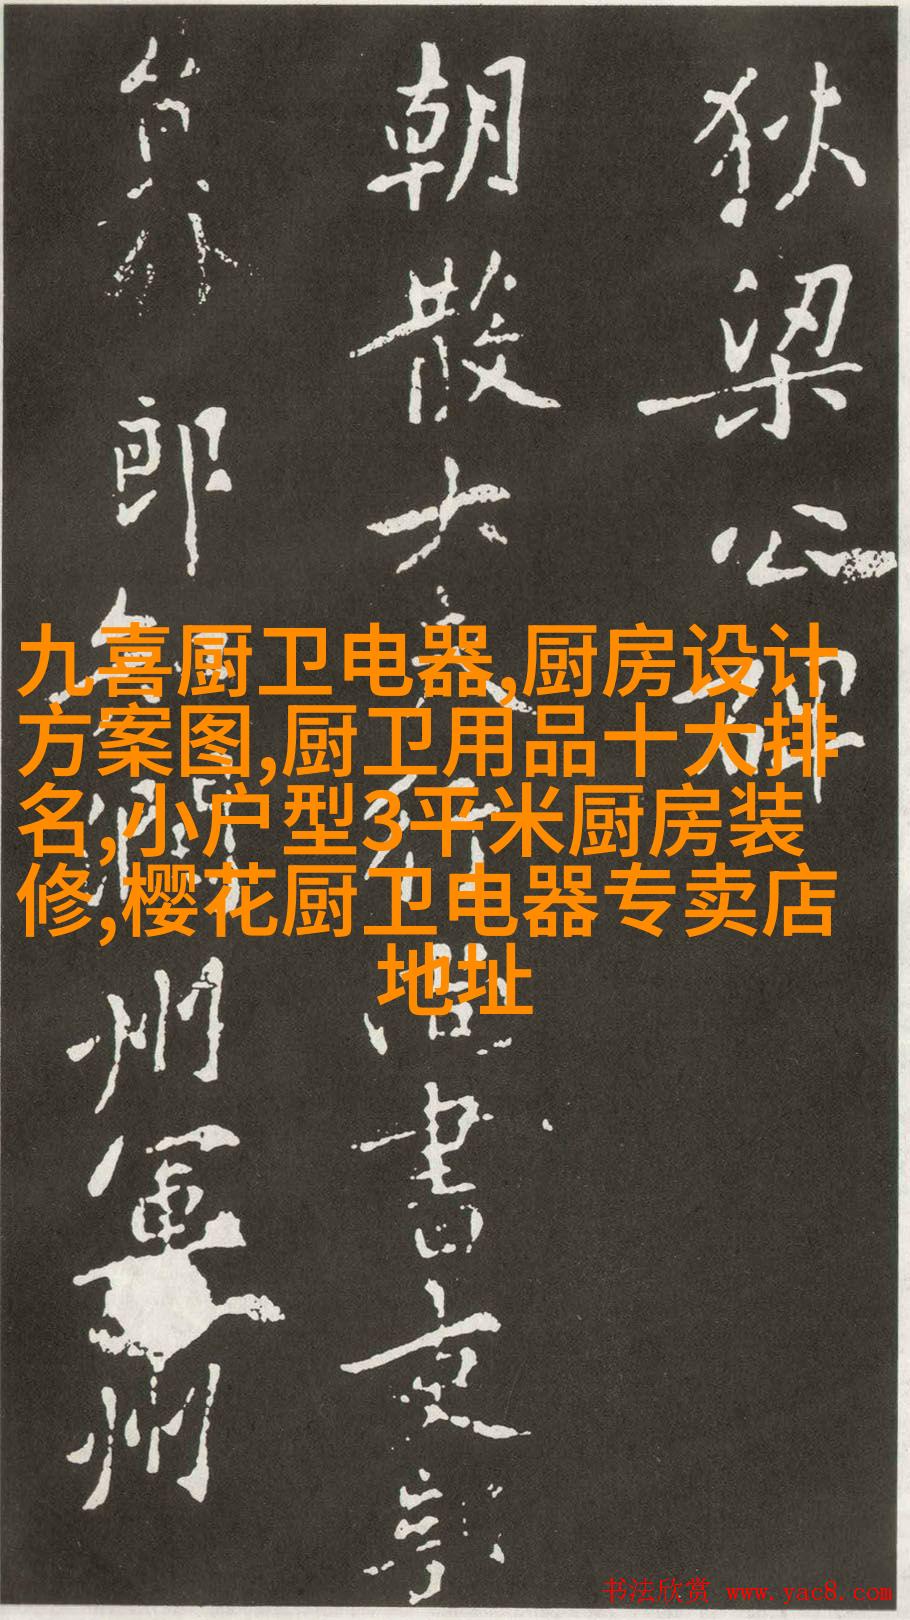 狄梁公碑
朝散大夫行尚書吏部
員外郎知潤州軍州
九喜厨卫电器,厨房设计
方案图,厨卫用品十大排
名,小户型3平米厨房装
修,樱花厨卫电器专卖店
地址
书法欣赏 www.yac8.com